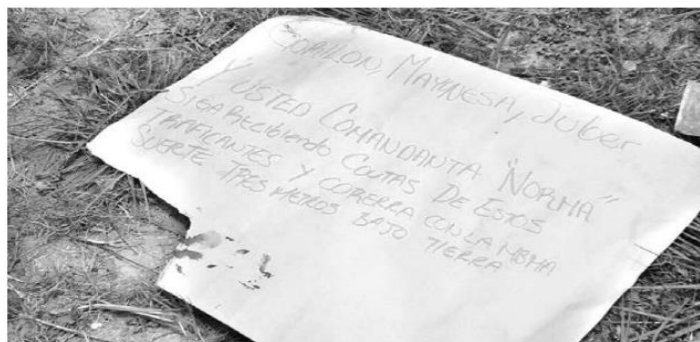 GORILON, MAYONESA, Juber
Y USTED COMANDANTA "NORMA"
SIGA RECIBIENDO COUTAS DE ESTOS
TRAFICANTES Y CORERRA CON LA MISMA
SUERTE TRES METROS BAJO TIERRA